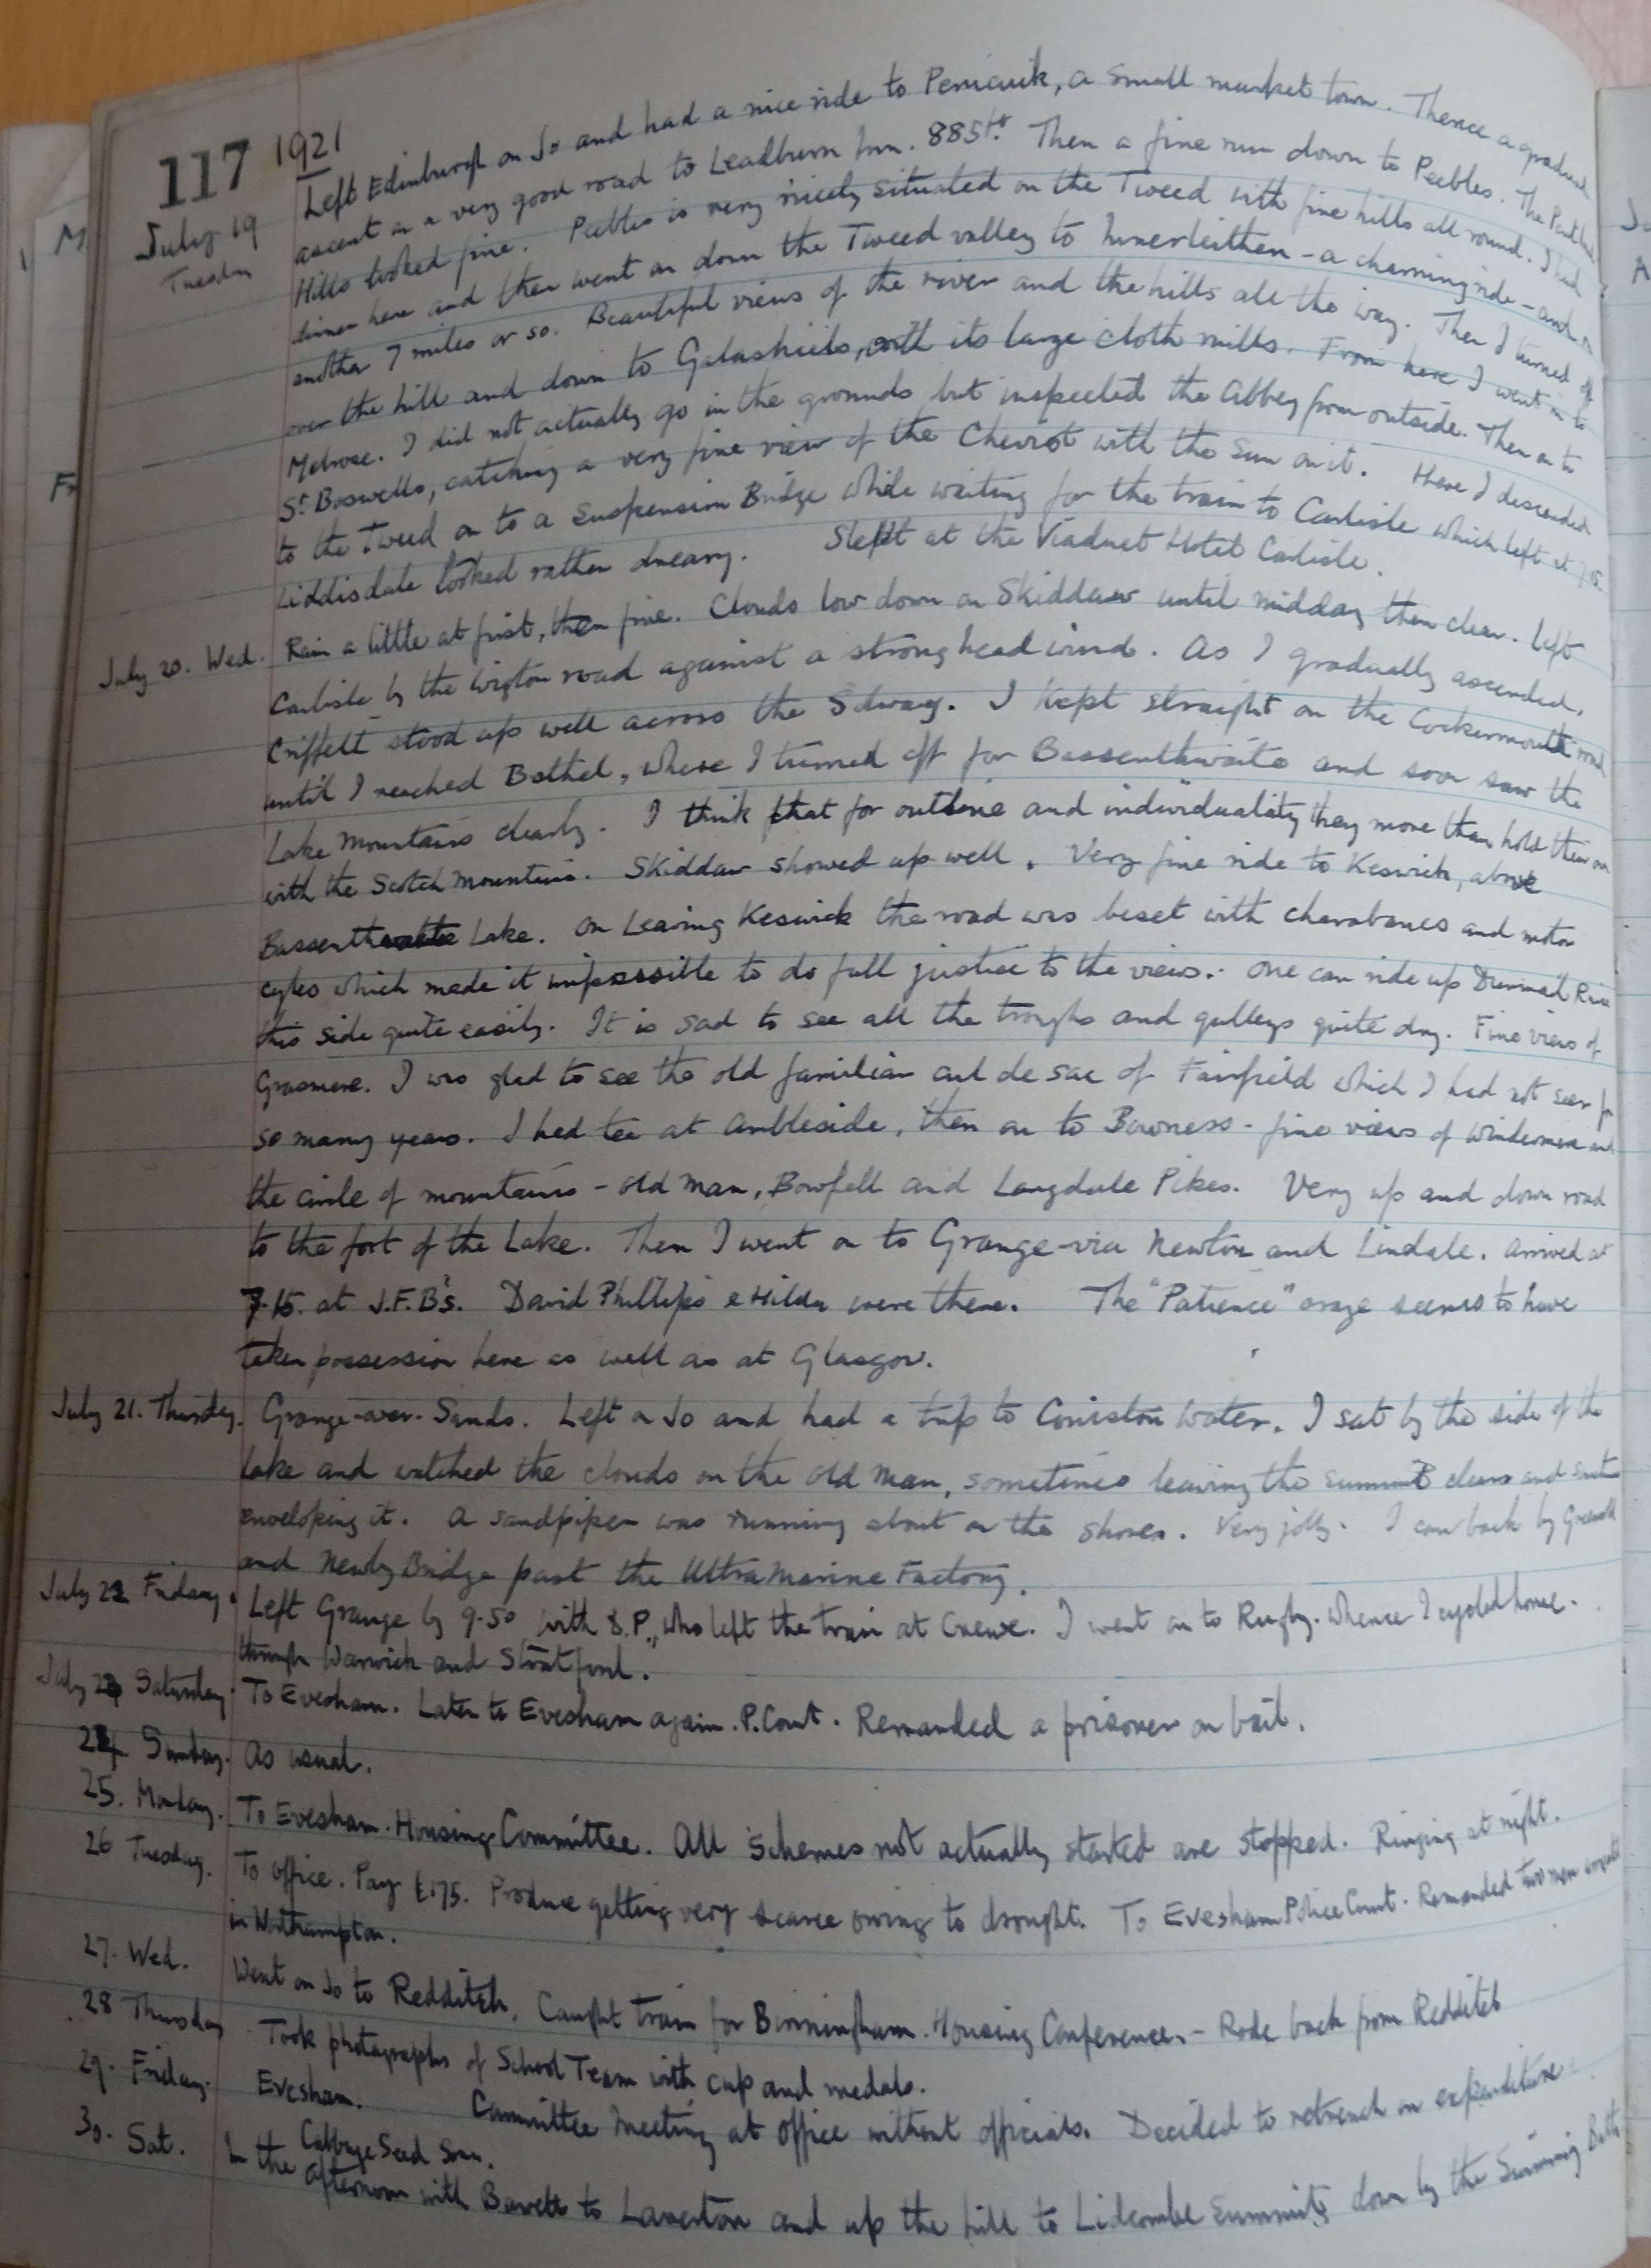 117 1921
July 19 Tuesday Left Edinburgh on Jo and had a nice ride to Penicuik, a small market town. Thence a gradual
ascent on a very good road to Leadburn Inn. 885 ft. Then a fine run down to Peebles. The Pentland
Hills looked fine. Peebles is very nicely situated on the Tweed with fine hills all round. I had
dinner here and then went on down the Tweed valley to Innerleithen - a charming ride - and
another 7 miles or so. Beautiful views of the river and the hills all the way. Then I turned off
over the hill and down to Galashiels, with its large cloth mills. From here I went on to
Melrose. I did not actually go in the grounds but inspected the Abbey from outside. Then on to
St. Boswells, catching a very fine view of the Cheviot with the Sun on it. Here I descended
to the Tweed on to a Suspension Bridge while waiting for the train to Carlisle which left at
Liddisdale looked rather dreary. Slept at the Viaduct Hotel Carlisle.
July 20. Wed. Rain a little at first, then fine. Clouds low down on Skiddaw until midday then clear. Left
Carlisle by the Wigton road against a strong head wind. As I gradually ascended,
Criffell stood up well across the Solway. I kept straight on the Cockermouth road
until I reached Bothel, where I turned off for Bassenthwaite and soon saw the
Lake Mountains clearly. I think that for outline and individuality they more than hold their own
with the Scotch Mountains. Skiddaw showed up well. Very fine ride to Keswick, above
Bassenthwaite Lake. On leaving Keswick the road was beset with charabancs and motor
cycles which made it impossible to do full justice to the views. One can ride up Dunmail Raise
this side quite easily. It is sad to see all the troughs and gulleys quite dry. Fine views of
Grasmere. I was glad to see the old familiar cul de sac of Fairfield which I had not seen for
so many years. I had tea at Ambleside, then on to Bowness - fine views of Windermere and
the circle of mountains - Old Man, Bowfell and Langdale Pikes. Very up and down road
to the foot of the Lake. Then I went on to Grange via Newton and Lindale. Arrived at
7.15. at J.F.B's. David Phillips & Hilda were there. The "Patience" craze seems to have
taken possession here as well as at Glasgow.
July 21. Thursday. Grange-over-Sands. Left on Jo and had a trip to Coniston Water. I sat by the side of the
Lake and watched the clouds on the Old Man, sometimes leaving the summit clear and
enveloping it. A sandpiper was running about on the shores. Very jolly. I came back by
and Newby Bridge past the Ultra Marine Factory.
July 22 Friday. Left Grange by 9.50 with D.P., who left the train at Crewe. I went on to Rugby. whence I cycled home.
through Warwick and Stratford.
July 23 Saturday. To Evesham. Later to Evesham again. P. Court. Remanded a prisoner on bail.
24 Sunday. As usual.
25. Monday. To Evesham. Housing Committee. All Schemes not actually started are stopped. Ringing at night.
26 Tuesday. To office. Pay £175. Produce getting very scarce owing to drought. To Evesham Police Court. Remanded two men
in Northampton.
27. Wed. Went on Jo to Redditch. Caught train for Birmingham. Housing Conference. - Rode back from Redditch
28 Thursday Took photographs of School Team with cup and medals.
29. Friday. Evesham. Committee Meeting at office without officials. Decided to retrench on expenditure.
30. Sat. Cabbage Seed Sown.
In the afternoon with Barett to Laverton and up the hill to Lidcombe Summit, down by the Swimming Bath